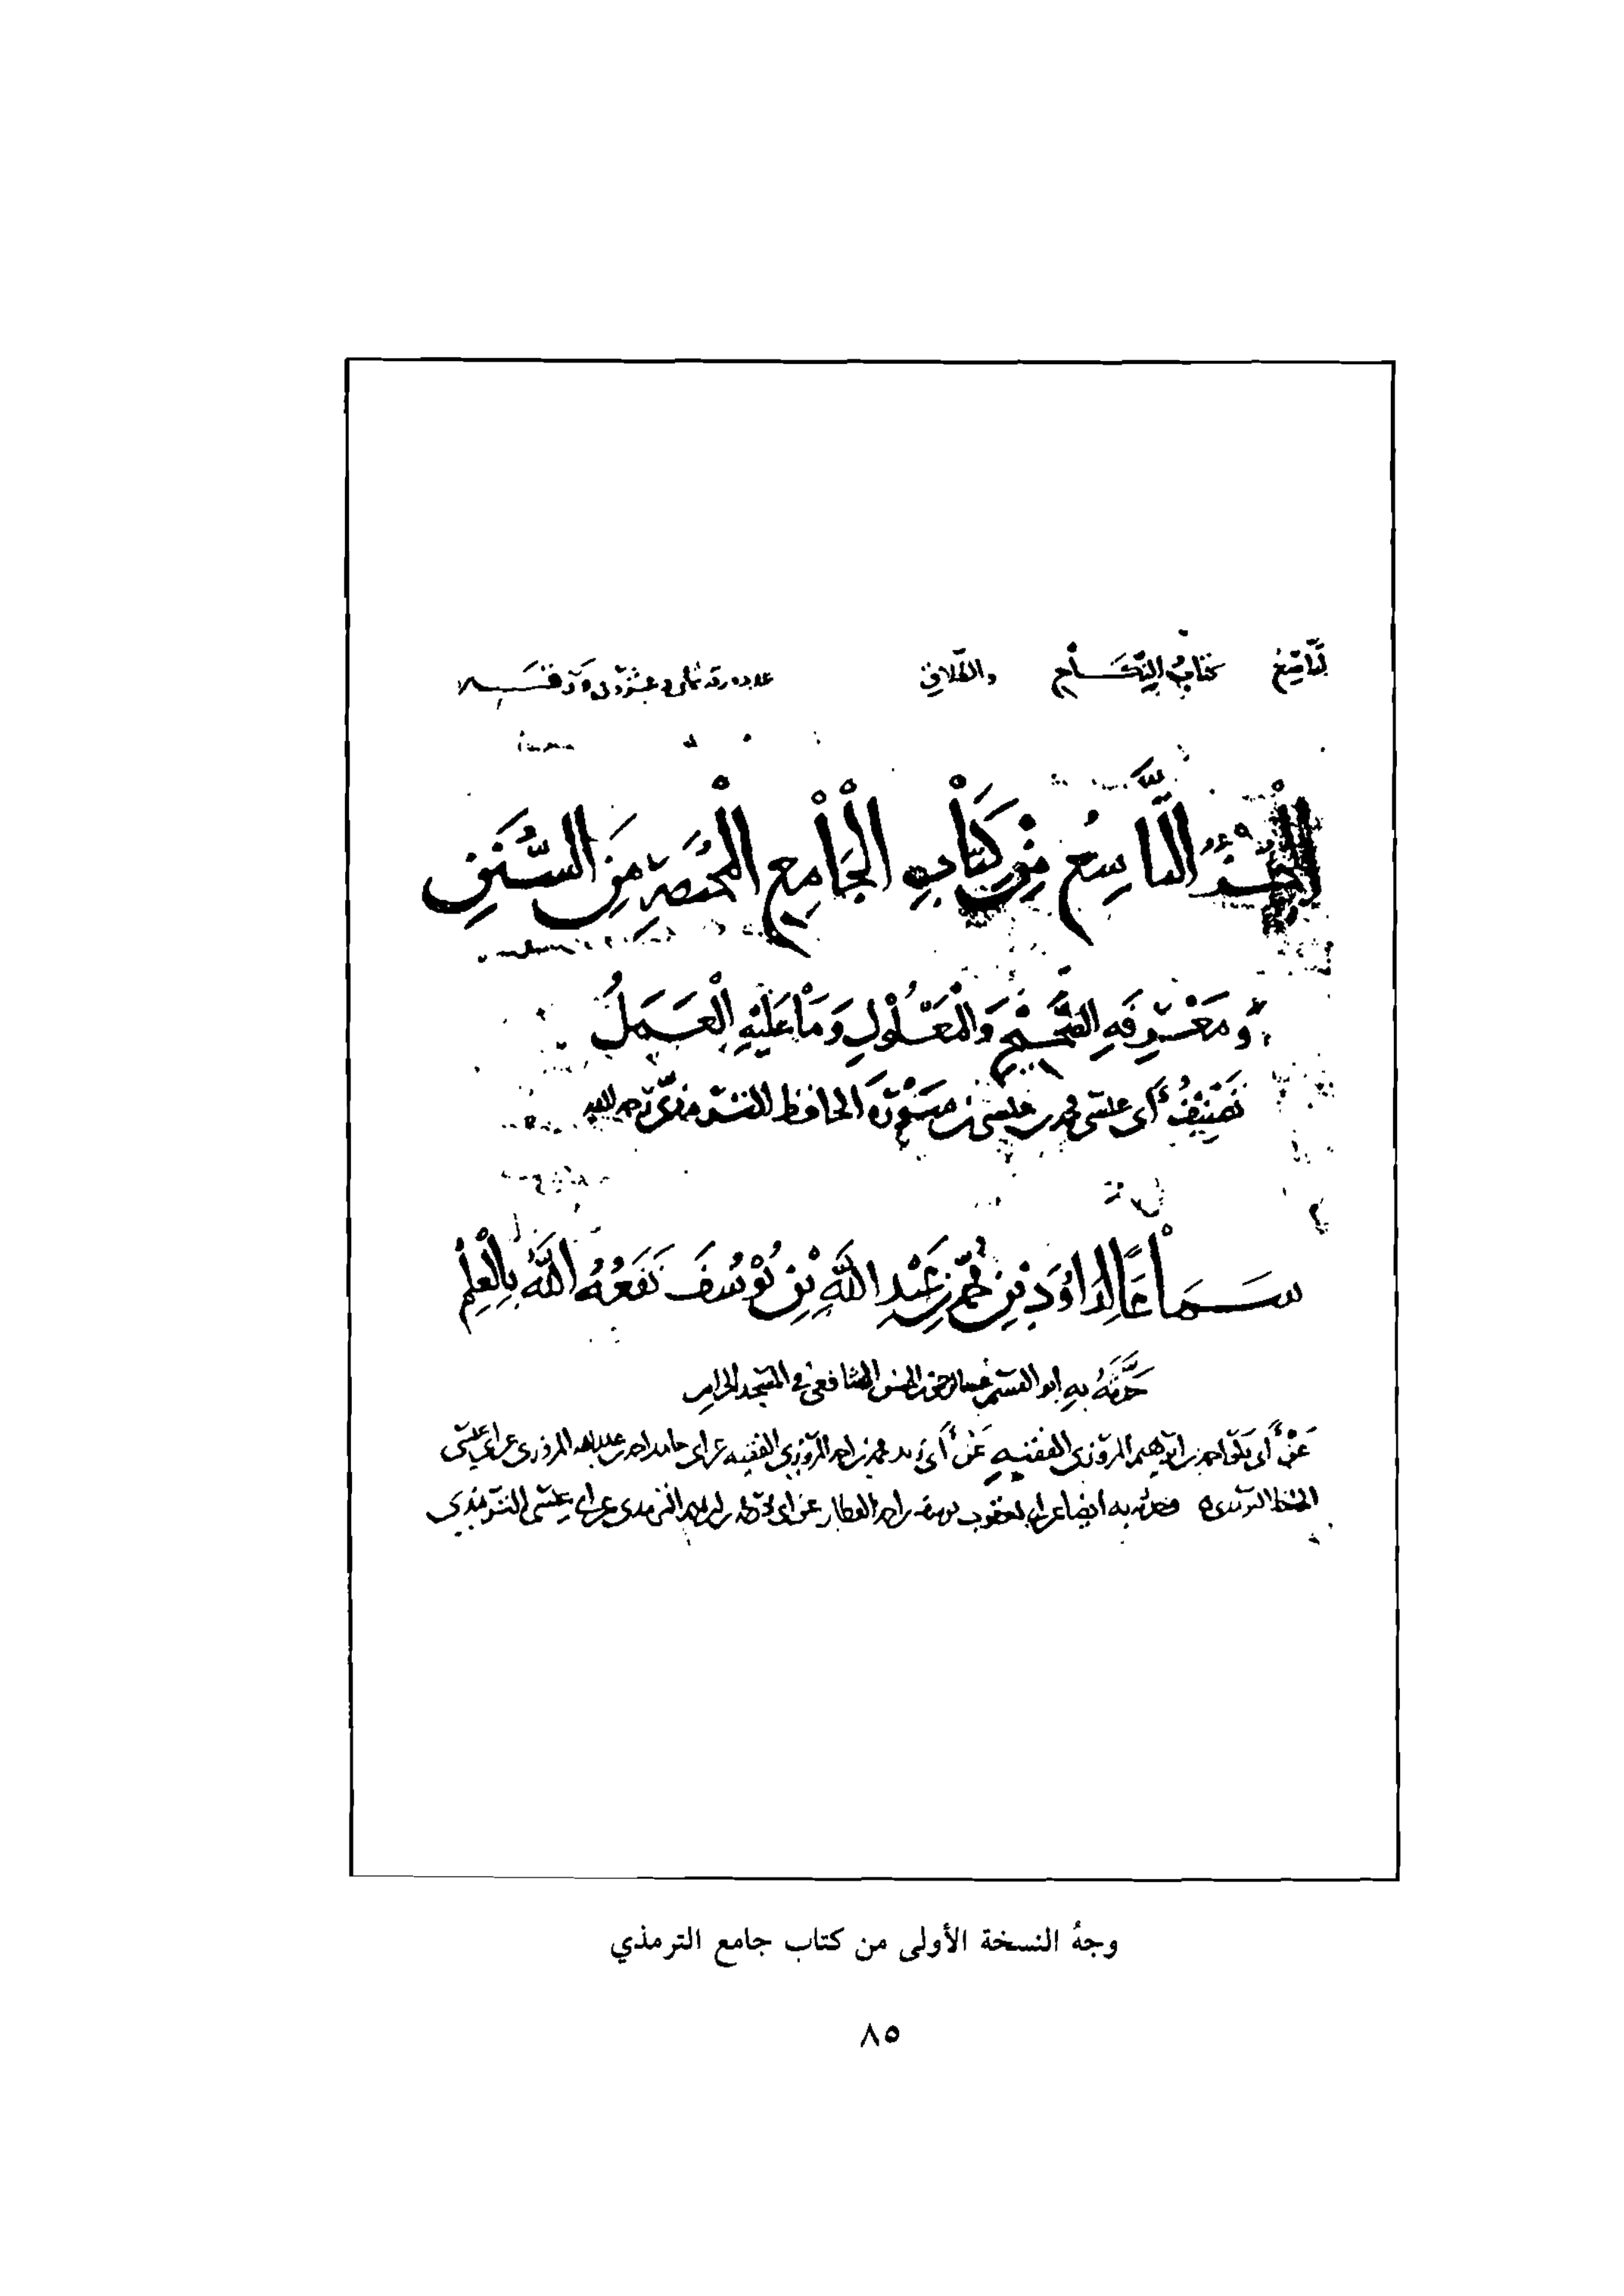 التاسع كتاب النكاح والطلاق
الجزء التاسع من كتاب الجامع المختصر من السنن
ومعرفة الصحيح والمعلول وما عليه العمل
تصنيف أبي عيسى محمد بن عيسى بن سورة الحافظ الترمذي رحمه الله
سماعًا لداود بن محمد بن عبد الله بن يوسف نفعه الله بالعلم
حدثه به أبو القسم عبد الرحمن بن الحسن الشافعي في المسجد الحرام
عن أبي بكر أحمد بن إبراهيم المروزي الفقيه عن أبي زيد محمد بن أحمد المروزي الفقيه عن أبي حامد أحمد بن عبد الله المروزي عن أبي عيسى
الحافظ الترمذي وحدثه به أيضا عن أبي يعقوب يوسف بن أحمد العطار عن أبي ابراهيم الترمذي عن أبي عيسى الترمذي
وجهُ النسخة الأولى من كتاب جامع الترمذي
٨٥